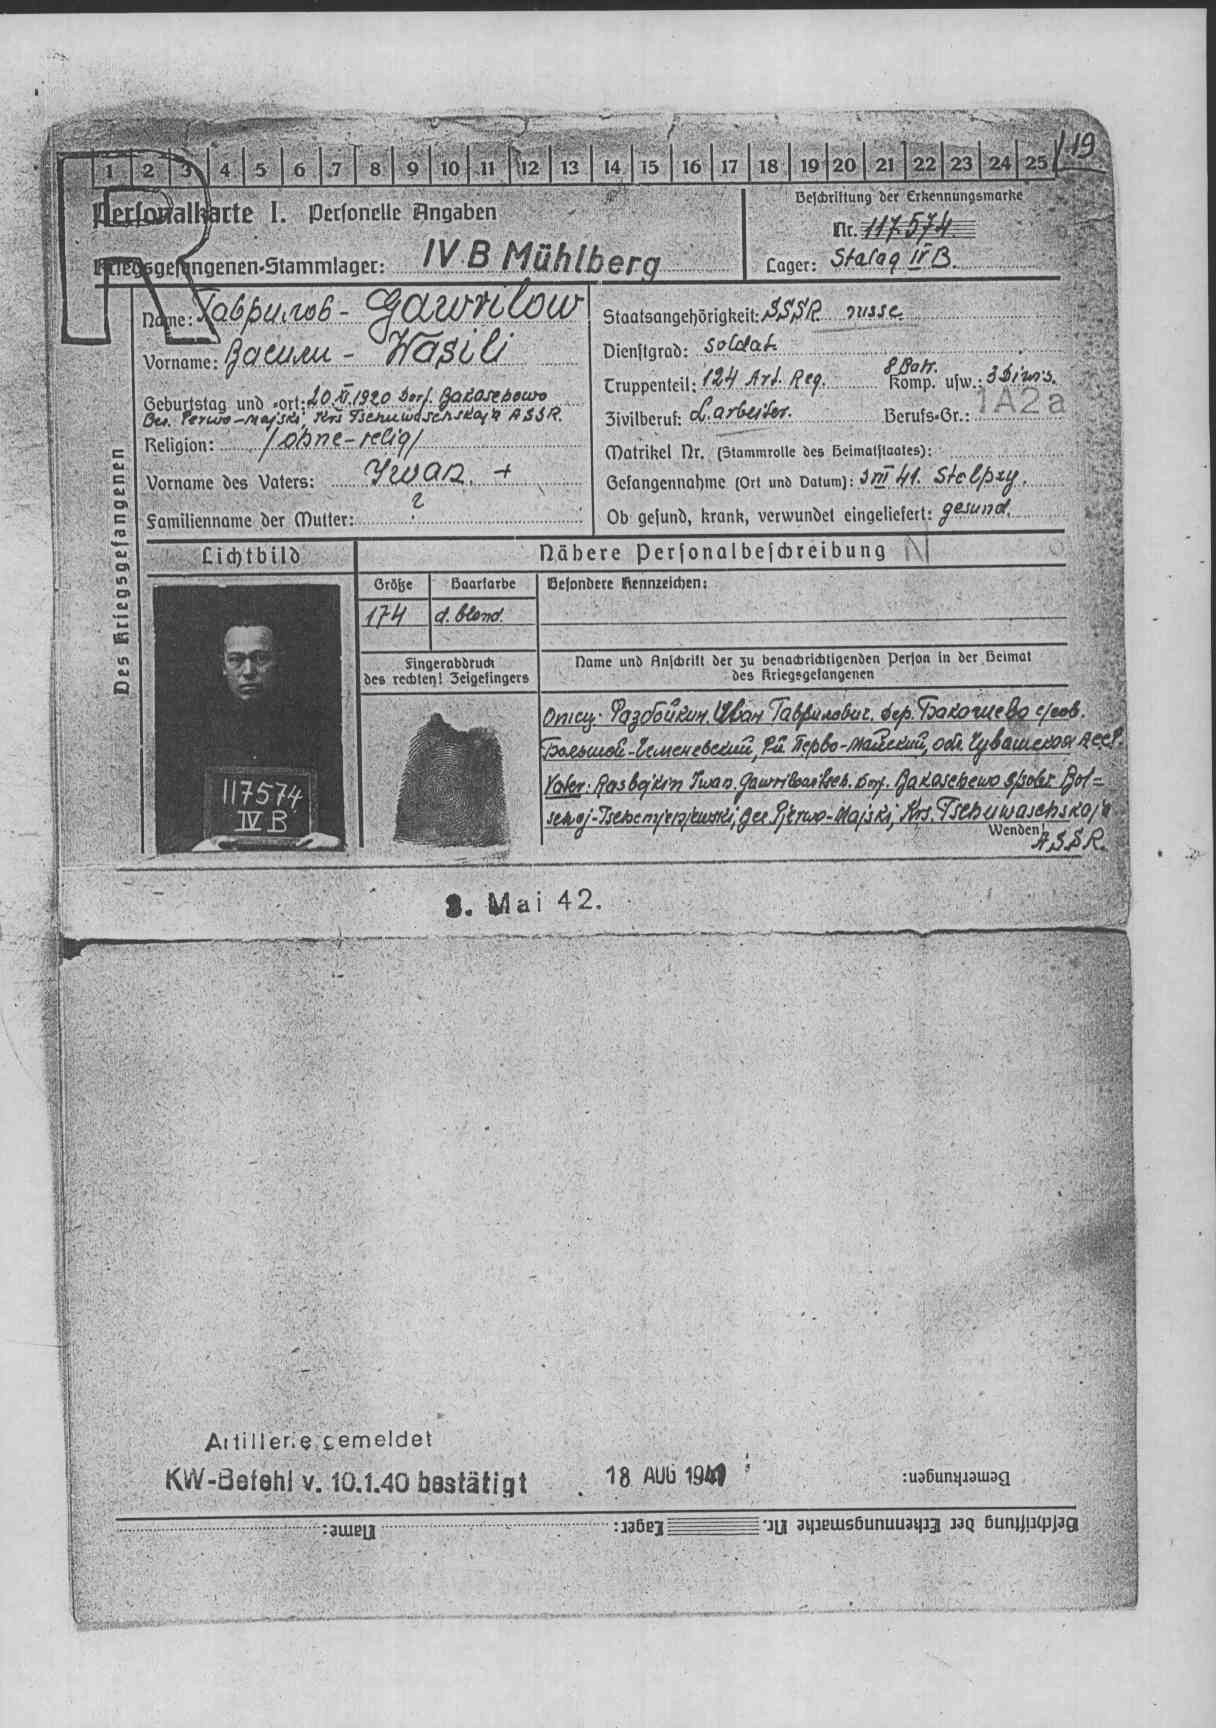 1 2 3 4 5 6 7 8 9 10 11 12 13 14 15 16 17 18 19 20 21 22 23 24 25 119
R
Personalkarte I. Personelle Angaben
Kriegsgefangenen-Stammlager: IV B Mühlberg
Beschriftung der Erkennungsmarke
Nr. 117574
Lager: Stalag IV B.
Des Kriegsgefangenen
Name: Гаврилов - Gawrilow
Vorname: Васили - Wasili
Geburtstag und -ort: 20 XI 1920 Dorf. Bakasehowo
Bes. Perwo-Majski, Krs Tschuwaschskaja ASSR.
Religion: /ohne-relig/
Vorname des Vaters: Iwan. +
Familienname der Mutter: ?
Staatsangehörigkeit: SSSR russe
Dienstgrad: Soldat
Truppenteil: 124 Art. Reg. 8 Batr. Komp. usw.: 3 Divis.
Zivilberuf: L. arbeiter. Berufs-Gr.: 1A2a
Matrikel Nr. (Stammrolle des Heimatstaates):
Gefangennahme (Ort und Datum): 3 VII 41. Stolpzy.
Ob gesund, krank, verwundet eingeliefert: gesund.
Lichtbild
Nähere Personalbeschreibung N
Größe Haarfarbe Besondere Kennzeichen:
174 d. blond.
Fingerabdruck
des rechten! Zeigefingers
Name und Anschrift der zu benachrichtigenden Person in der Heimat
des Kriegsgefangenen
Отцу: Разбойкин Иван Гаврилович. дер. Бакашево с/сов.
Большой-Чеменевский, Р-й Перво-Майский, обл Чувашская АССР.
Vater: Rasbojkin Iwan Gawrilowitsch. Dorf. Bakasehewo s/sowj. Bol=
schoj-Tschemjenjewski, Gee Pjerwo-Majski, Krs. Tschuwaschskaja
ASSR.
Wenden!
117574
IV B
3. Mai 42.
Artillerie gemeldet
KW-Befehl v. 10.1.40 bestätigt
18 AUG 1941
Bemerkungen:
Beschriftung der Erkennungsmarke Nr. Lager: Name: